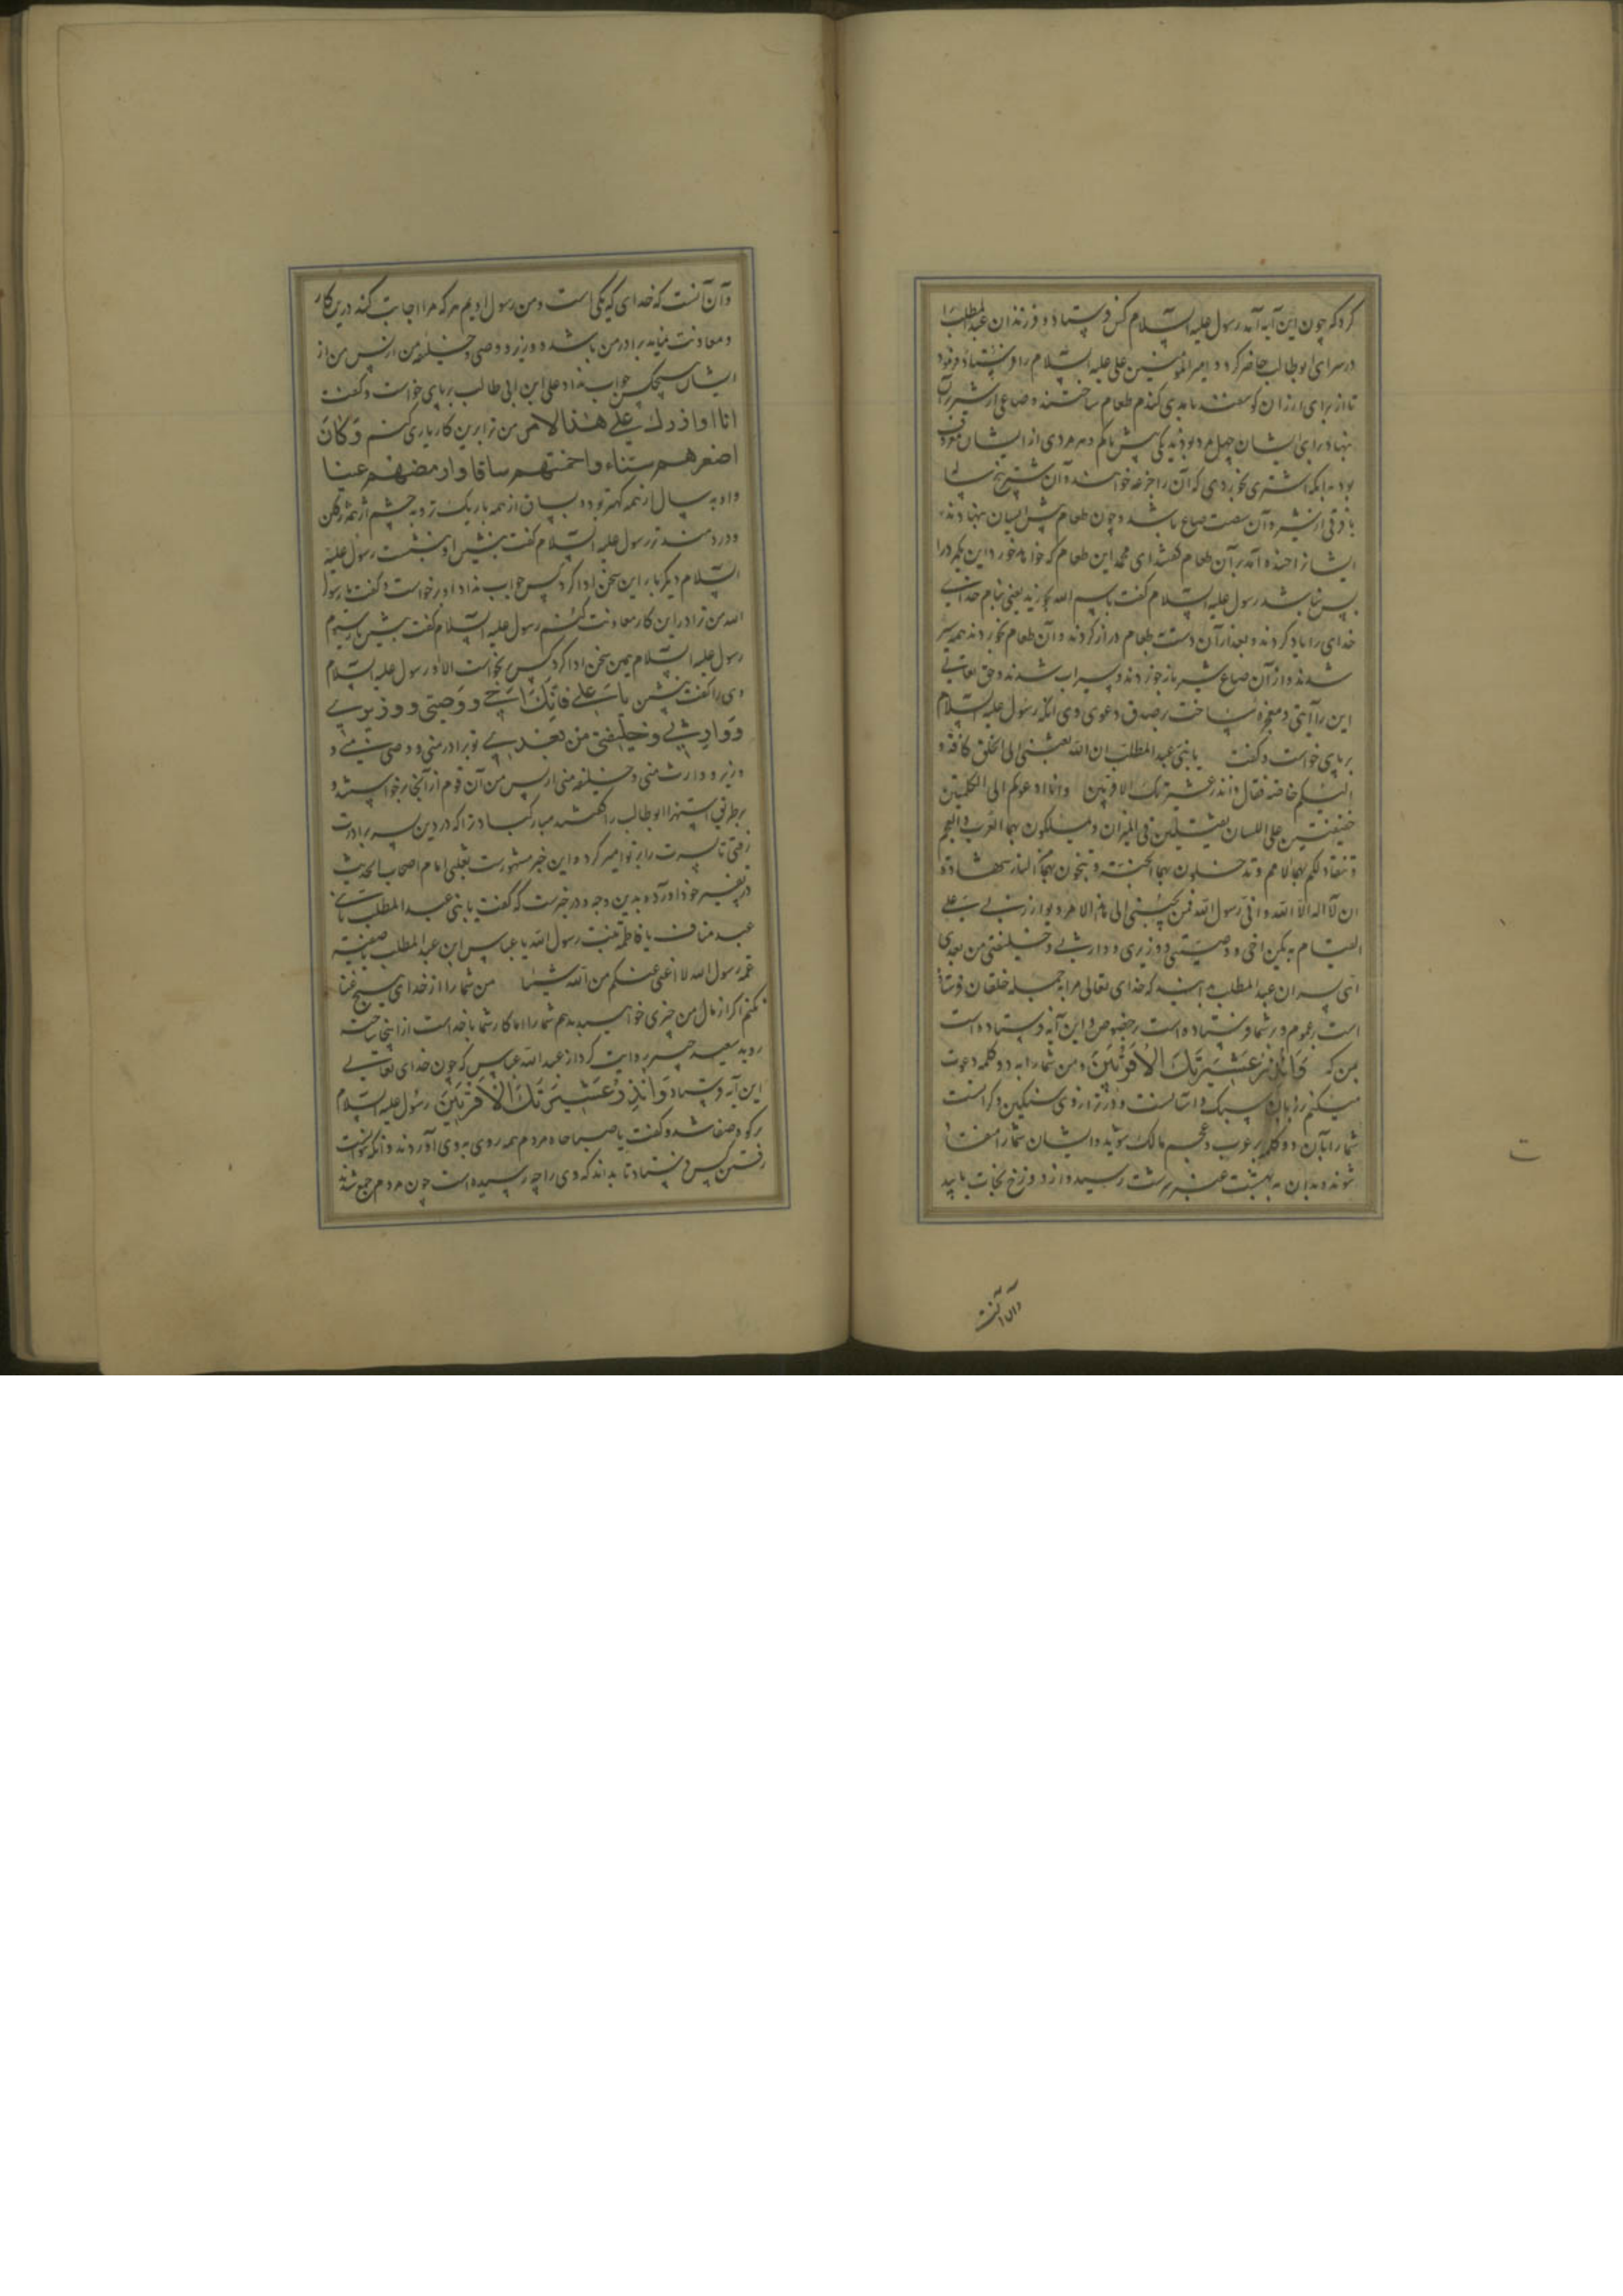 کرد که چون این آیه آمد رسول علیه السلام کس فرستاد و فرزندان عبدالمطلب را
در سرای ابوطالب حاضر کرد و امیرالمؤمنین علی علیه السلام را فرستاد و فرمود
تا از برای ایشان گوسفند با مدی گندم طعام ساختند و صاعی از شیر آن
بنهاد برای ایشان چهل مرد بودند یکی بیش یا کم و هر مردی از ایشان معروف
بود بدانکه اشتری بخوردی که آن را جذعه خوانند و آن شتر پنج ساله
با فرقی از شیر و آن صاع باشد و چون طعام پیش ایشان بنهادند
ایشان را خنده آمد بر آن طعام گفتند ای محمد این طعام که خواهد خورد این یک مرد را
بس نباشد رسول علیه السلام گفت باسم الله بخورید یعنی بنام خدای
خدای را یاد کردند و بعد از آن دست بطعام دراز کردند و آن طعام بخوردند همه سیر
شدند و از آن صاع شیر باز خوردند و سیراب شدند و حق تعالی
این را آیتی و معجزه ساخت بر صدق دعوی وی آنگه رسول علیه السلام
بر پای خواست و گفت یا بنی عبدالمطلب ان الله بعثنی الی الخلق کافة و
الیکم خاصة فقال وانذر عشیرتک الاقربین وانا ادعوکم الی الکلمتین
خفیفتین علی اللسان ثقیلتین فی المیزان و تملکون بهما العرب والعجم
و تنقاد لکم بهما الامم و تدخلون بهما الجنة و تنجون بهما من النار شهادة
ان لا اله الا الله وانی رسول الله فمن یجیبنی الی هذا الامر و یوازرنی علی
القیام به یکن اخی و وصیتی و وزیری و وارثی و خلیفتی من بعدی
ای پسران عبدالمطلب بدانید که خدای تعالی مرا بجمله خلقان فرستاد
است بعموم و بر شما فرستاده است بخصوص و این آیه فرستاده است
بمن که وَاَنْذِرْ عَشِیرَتَکَ الاَقْرَبِینَ و من شما را به دو کلمه دعوت
میکنم بر زبان سبک و آسانست و در ترازوی سنگین و گرانست
شما را بآن دو کلمه بر عرب و عجم مالک شوید و ایشان شما را منقاد
شوند و بدان به بهشت رسید و از دوزخ نجات یابید
و آن آنست
و آن آنست که خدای که یکی است و من رسول اویم هر که مرا اجابت کند درین کار
و معاونت نماید برادر من باشد و وزیر و وصی و خلیفه من از پس من از
ایشان هیچکس جواب نداد علی ابن ابی طالب بر پای خواست و گفت
انا اوازرک علی هذا الامر من ترا برین کار یاری کنم وَکانَ
اصغرهم سناء واخمتهم ساقا وارمضهم عینا
و او به سال از همه کهتر بود و بساق از همه باریک‌تر و به چشم از همه
و دردمندتر رسول علیه السلام گفت بنشین او بنشست رسول علیه
السلام دیگر بار این سخن ادا کرد کس جواب نداد او برخواست و گفت یا رسول
الله من ترا در این کار معاونت کنم رسول علیه السلام گفت بنشین بار سیوم
رسول علیه السلام همین سخن ادا کرد کس نخواست الا او رسول علیه السلام
وی را گفت بنشین یا علی فانک اخی و وصیتی و وزیری
و وارثی و خلیفتی من بعدی تو برادر منی و وصی منی و
وزیر و وارث منی و خلیفه منی از پس من آن قوم از آنجا برخواستند و
بر طریق استهزا ابوطالب را گفتند مبارک باد ترا که در دین پسر برادرت
رفتی تا پسرت را بر تو امیر کرد و این خبر مشهورست ثعلبی امام اصحاب الحدیث
در تفسیر خود آورده بدین وجه و در خبرست که گفت یا بنی عبدالمطلب یا بنی
عبد مناف یا فاطمة بنت رسول الله یا عباس ابن عبدالمطلب یا صفیة
عمة رسول الله لا اغنی عنکم من الله شیئا من شما را از خدای هیچ غنا
نکنم اگر از مال من چیزی خواهید بدهم شما را اما کار شما با خداست از اینجا ساخته
روید سعید جبیر روایت کرد از عبدالله عباس که چون خدای تعالی
این آیه فرستاد وَاَنْذِرْ عَشِیرَتَکَ الْاَقْرَبِینَ رسول علیه السلام
بر کوه صفا شد و گفت یا صباحاه مردم همه روی به وی آوردند و آنکه نتوانست
رفتن کس فرستاد تا بداند که وی را چه رسیده است چون مردم جمع شدند